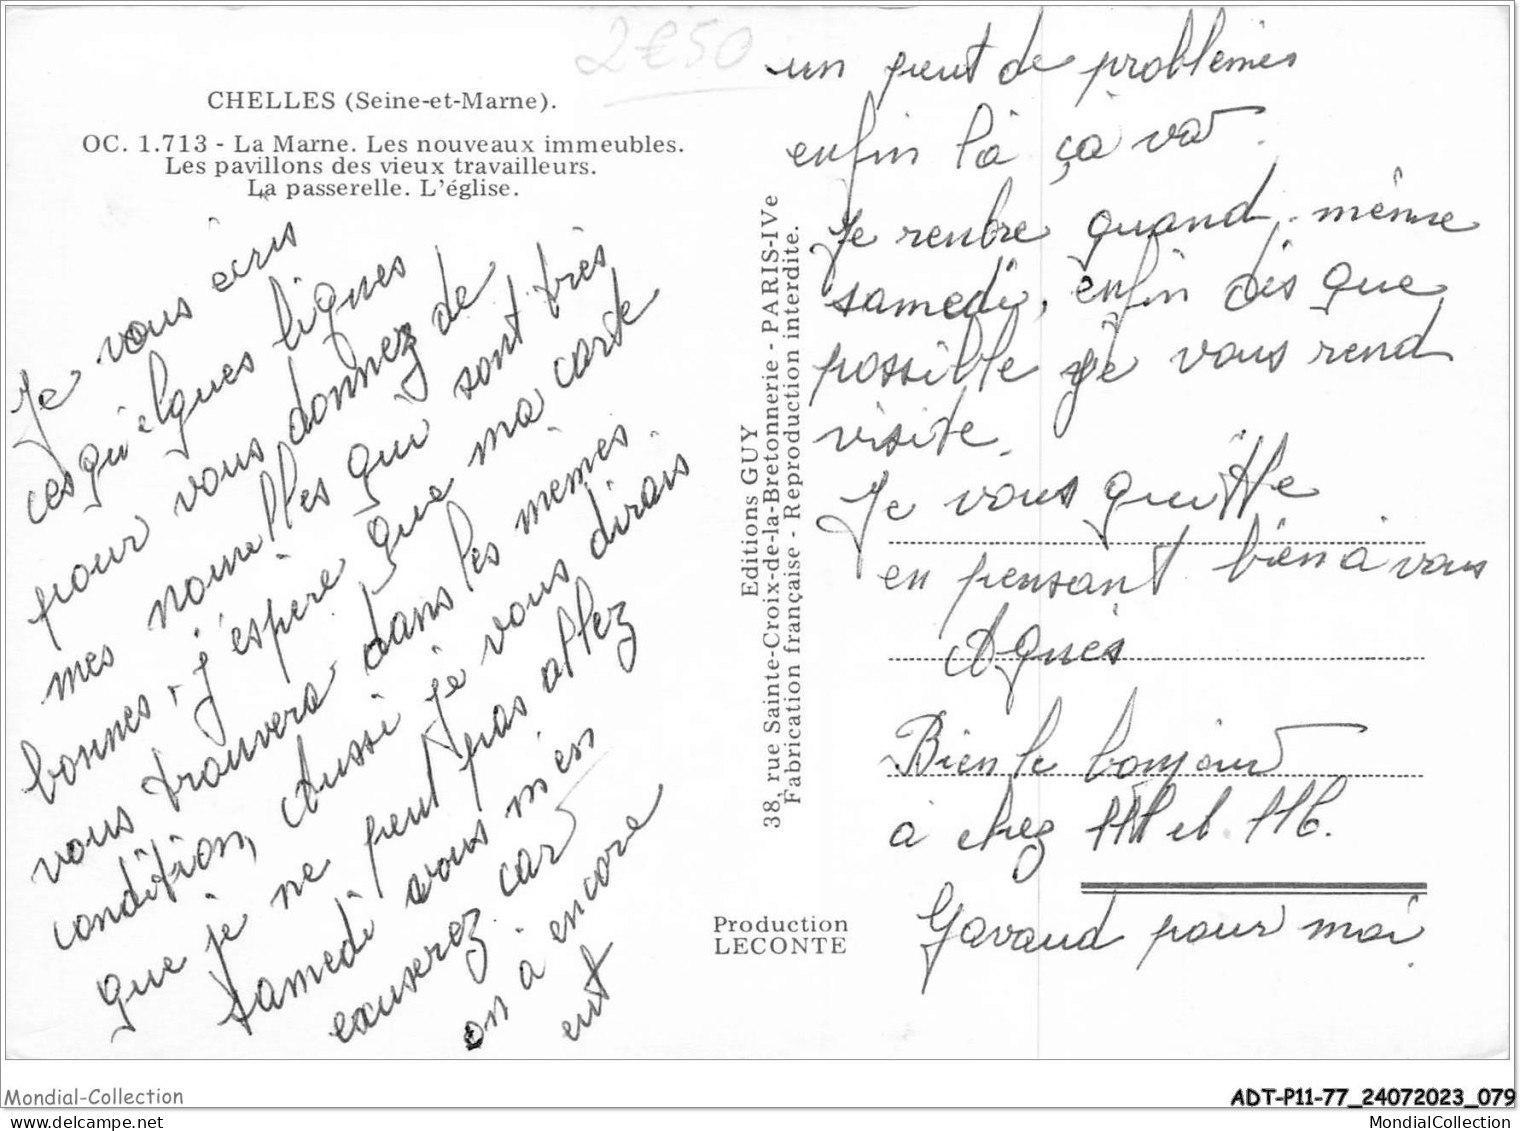 2€50
CHELLES (Seine-et-Marne).
OC. 1.713 - La Marne. Les nouveaux immeubles.
Les pavillons des vieux travailleurs.
La passerelle. L'église.
Je vous écris
ces qu'elques lignes
pour vous donnez de
mes nouvelles qui sont très
bonnes, j'espère que ma carte
vous trouvera dans les mêmes
condition, Aussi je vous dirais
que je ne peut pas allez
samedi vous m'en
excuserez car
on à encore
eut
un peut de problèmes
enfin là ça va.
Je rentre quand même
samedi, enfin dès que
possible je vous rend
visite.
Je vous quitte
en pensant bien à vous
Agnès
Bien le bonjour
à chez Mll et MC.
Gavaud pour moi.
Editions GUY
38, rue Sainte-Croix-de-la-Bretonnerie - PARIS-IVe
Fabrication française - Reproduction interdite.
Production
LECONTE
Mondial-Collection
ADT-P11-77_24072023_079
mondial-collection.com
MondialCollection